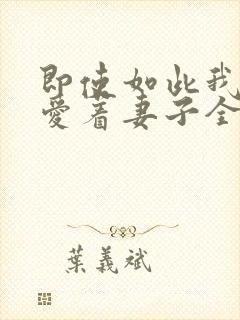 即使如此我
愛着妻子全
葉義斌